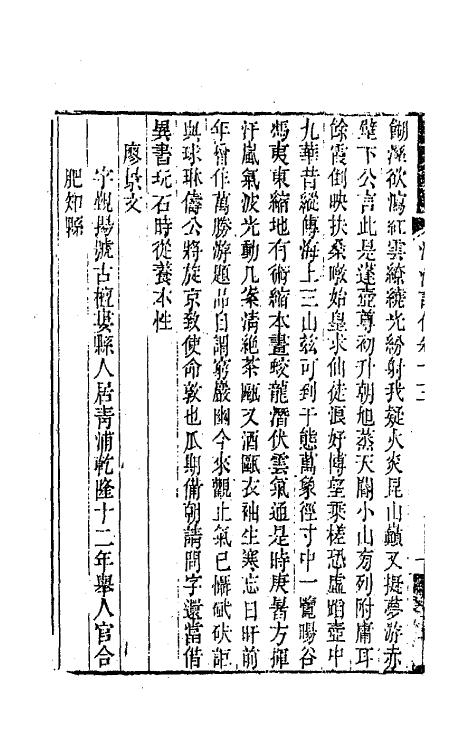 餬溼欲瀉紅雲繚繞光紛射我疑火炎昆山巔又擬夢游赤
壁下公言此是蓬壺尊初升朝旭蒸天閽小山旁列附庸耳
餘霞倒映扶桑暾始皇求仙徒浪好博望乘槎恐虛蹈壺中
九華昔縱傳海上三山兹可到千態萬象徑寸中一覽暘谷
馮夷東縮地有術縮本畫蛟龍潛伏雲氣通是時庚暑方揮
汗嵐氣波光動几案清絶茶甌又酒甌衣袖生寒忘日旰前
年曾作萬勝游題品自謂窮巖幽今來觀止氣已懾碔砆詎
與球琳儔公將旋京敎使命敦也瓜期備朝請問字還當借
異書玩石時從養本性
廖景文
字覲揚號古檀婁縣人居靑浦乾隆十二年舉人官合
肥知縣